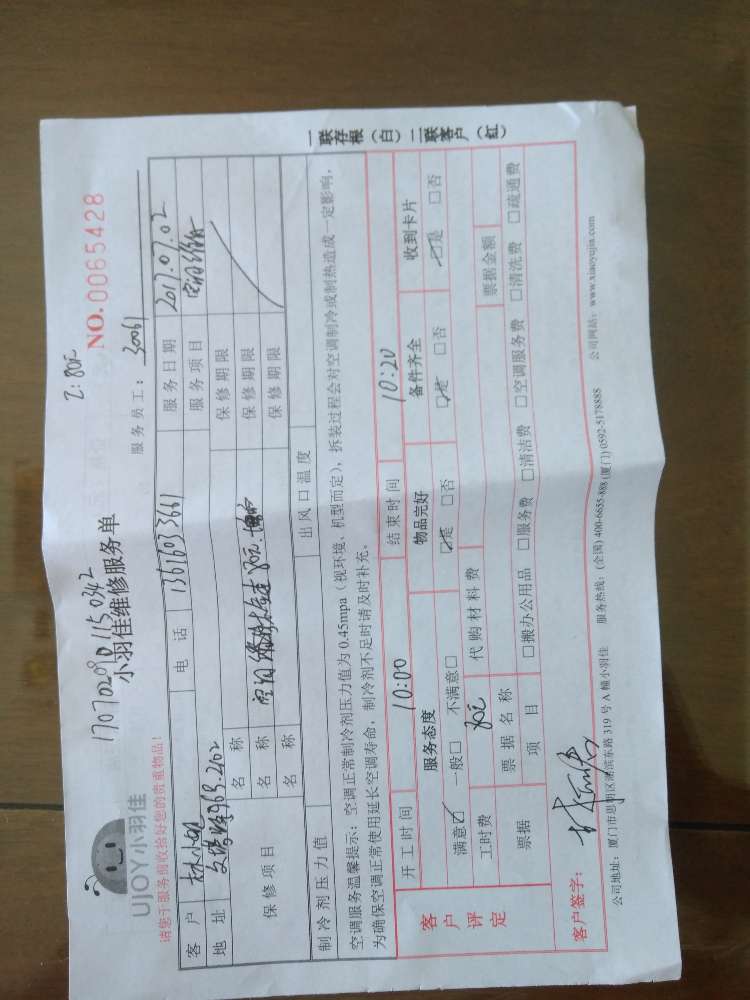 170702090115 0342
Z:80元
UJOY小羽佳
小羽佳维修服务单
NO.0065428
请您于服务前收拾好您的贵重物品!
服务员工: 30061
客户 电话 13616033661 服务日期 2017.07.02
地址 服务项目
保修项目 名称 保修期限
名称 保修期限
名称 保修期限
制冷剂压力值 出风口温度
空调服务温馨提示:空调正常制冷剂压力值为0.45mpa(视环境、机型而定),拆装过程会对空调制冷或制热造成一定影响,
为确保空调正常使用延长空调寿命,制冷剂不足时请及时补充。
开工时间 10:00 结束时间 10:20
客户评定 服务态度 物品完好 备件齐全 收到卡片
满意☑ 一般□ 不满意□ ☑是 □否 ☑是 □否 ☑是 □否
工时费 80元 代购材料费
票据 票据名称 票据金额
项目 □搬办公用品 □服务费 □清洁费 □空调服务费 □清洗费 □疏通费
客户签字:
公司地址:厦门市思明区湖滨东路319号A幢小羽佳 服务热线:(全国)400-6655-888 (厦门)0592-5178885 公司网站:www.xiaoyujia.com
一联存根(白)二联客户(红)